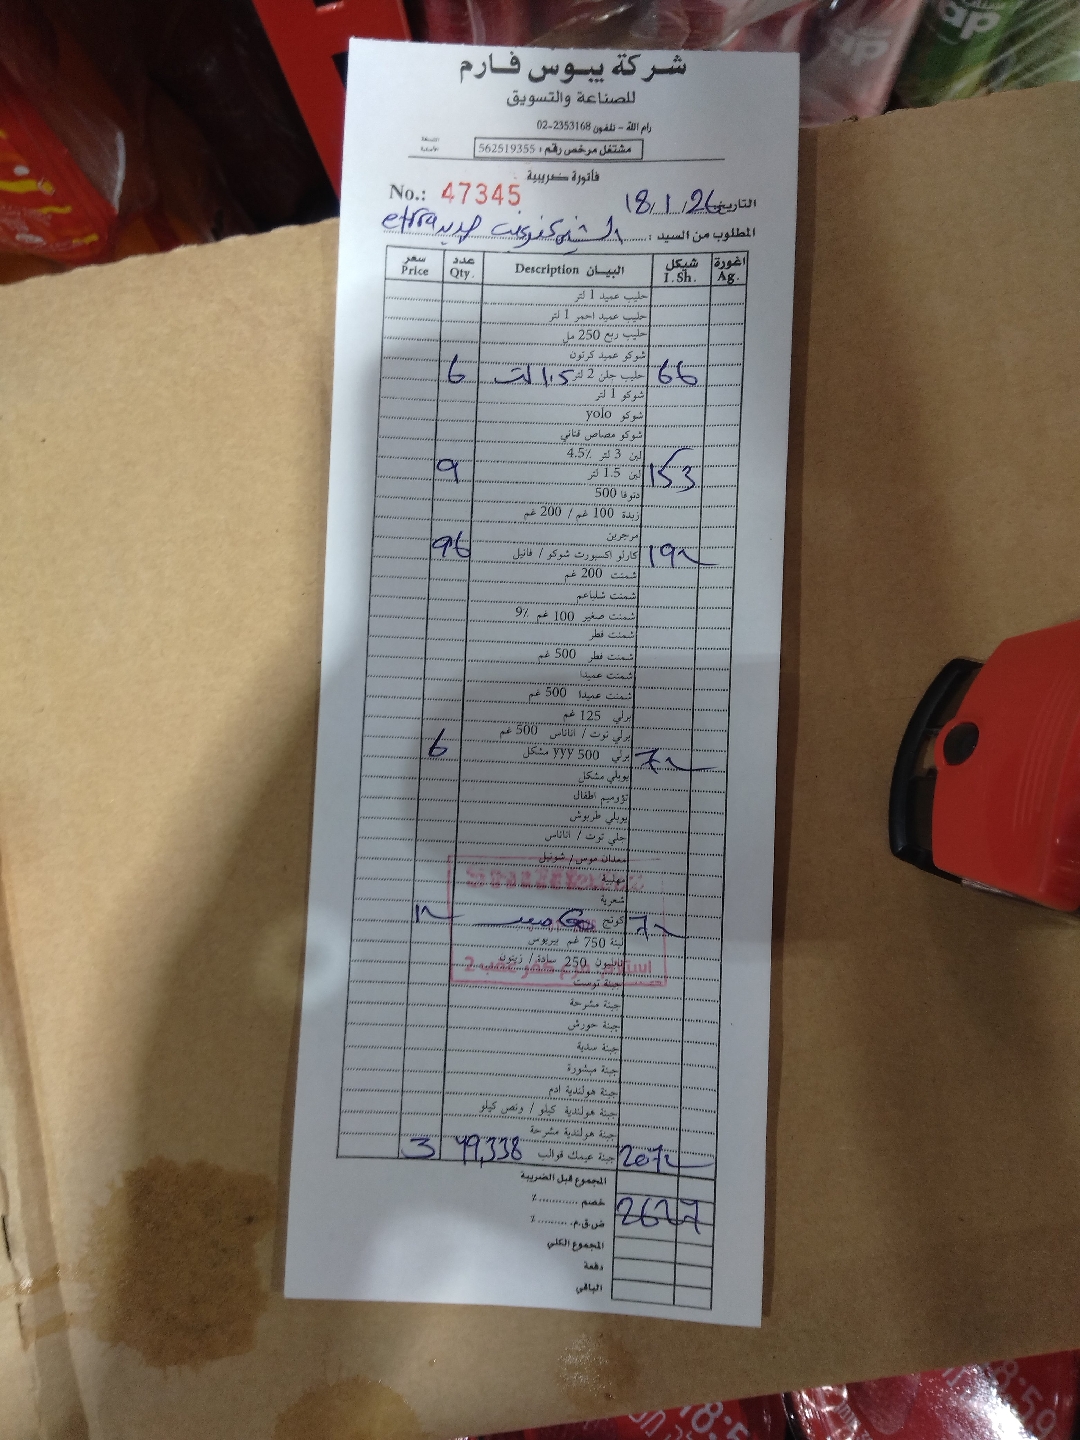 شركة يبوس فارم
للصناعة والتسويق
رام الله - تلفون 02-2353168
مشتغل مرخص رقم: 562519355
النسخة الأصلية
فاتورة ضريبية
No.: 47345
التاريخ 18/1/26
المطلوب من السيد:
سعر Price عدد Qty. البيـان Description شيكل I.Sh. اغورة Ag.
حليب عميد 1 لتر
حليب عميد احمر 1 لتر
حليب ربع 250 مل
شوكو عميد كرتون
6 حليب جلن 2 لتر 1.5 لتر 66
شوكو 1 لتر
شوكو yolo
شوكو مصاص قناني
لبن 3 لتر 4.5٪
9 لبن 1.5 لتر 153
دنوفا 500
زبدة 100 غم / 200 غم
مرجرين
96 كارلو اكسبورت شوكو / فانيل 192
شمنت 200 غم
شمنت شلباعم
شمنت صغير 100 غم 9٪
شمنت فطر
شمنت فطر 500 غم
شمنت عميدا
شمنت عميدا 500 غم
برلي 125 غم
برلي توت / اناناس 500 غم
6 برلي 500 yyy مشكل 72
يوبلي مشكل
تؤوميم اطفال
يوبلي طربوش
جلي توت / اناناس
معدان موس / شونيل
مهلبية
شعرية
12 كوتج 72
لبنة 750 غم يبوس
نابليون 250 سادة / زيتون
جبنة توست
جبنة مشرحة
جبنة حورش
جبنة سدية
جبنة مبشورة
جبنة هولندية ادم
جبنة هولندية كيلو / ونص كيلو
جبنة هولندية مشرحة
3 جبنة عيمك قوالب 49,338 2072
المجموع قبل الضريبة
خصم ............ ٪
ض.ق.م. ......... ٪ 2627
المجموع الكلي
دفعة
الباقي